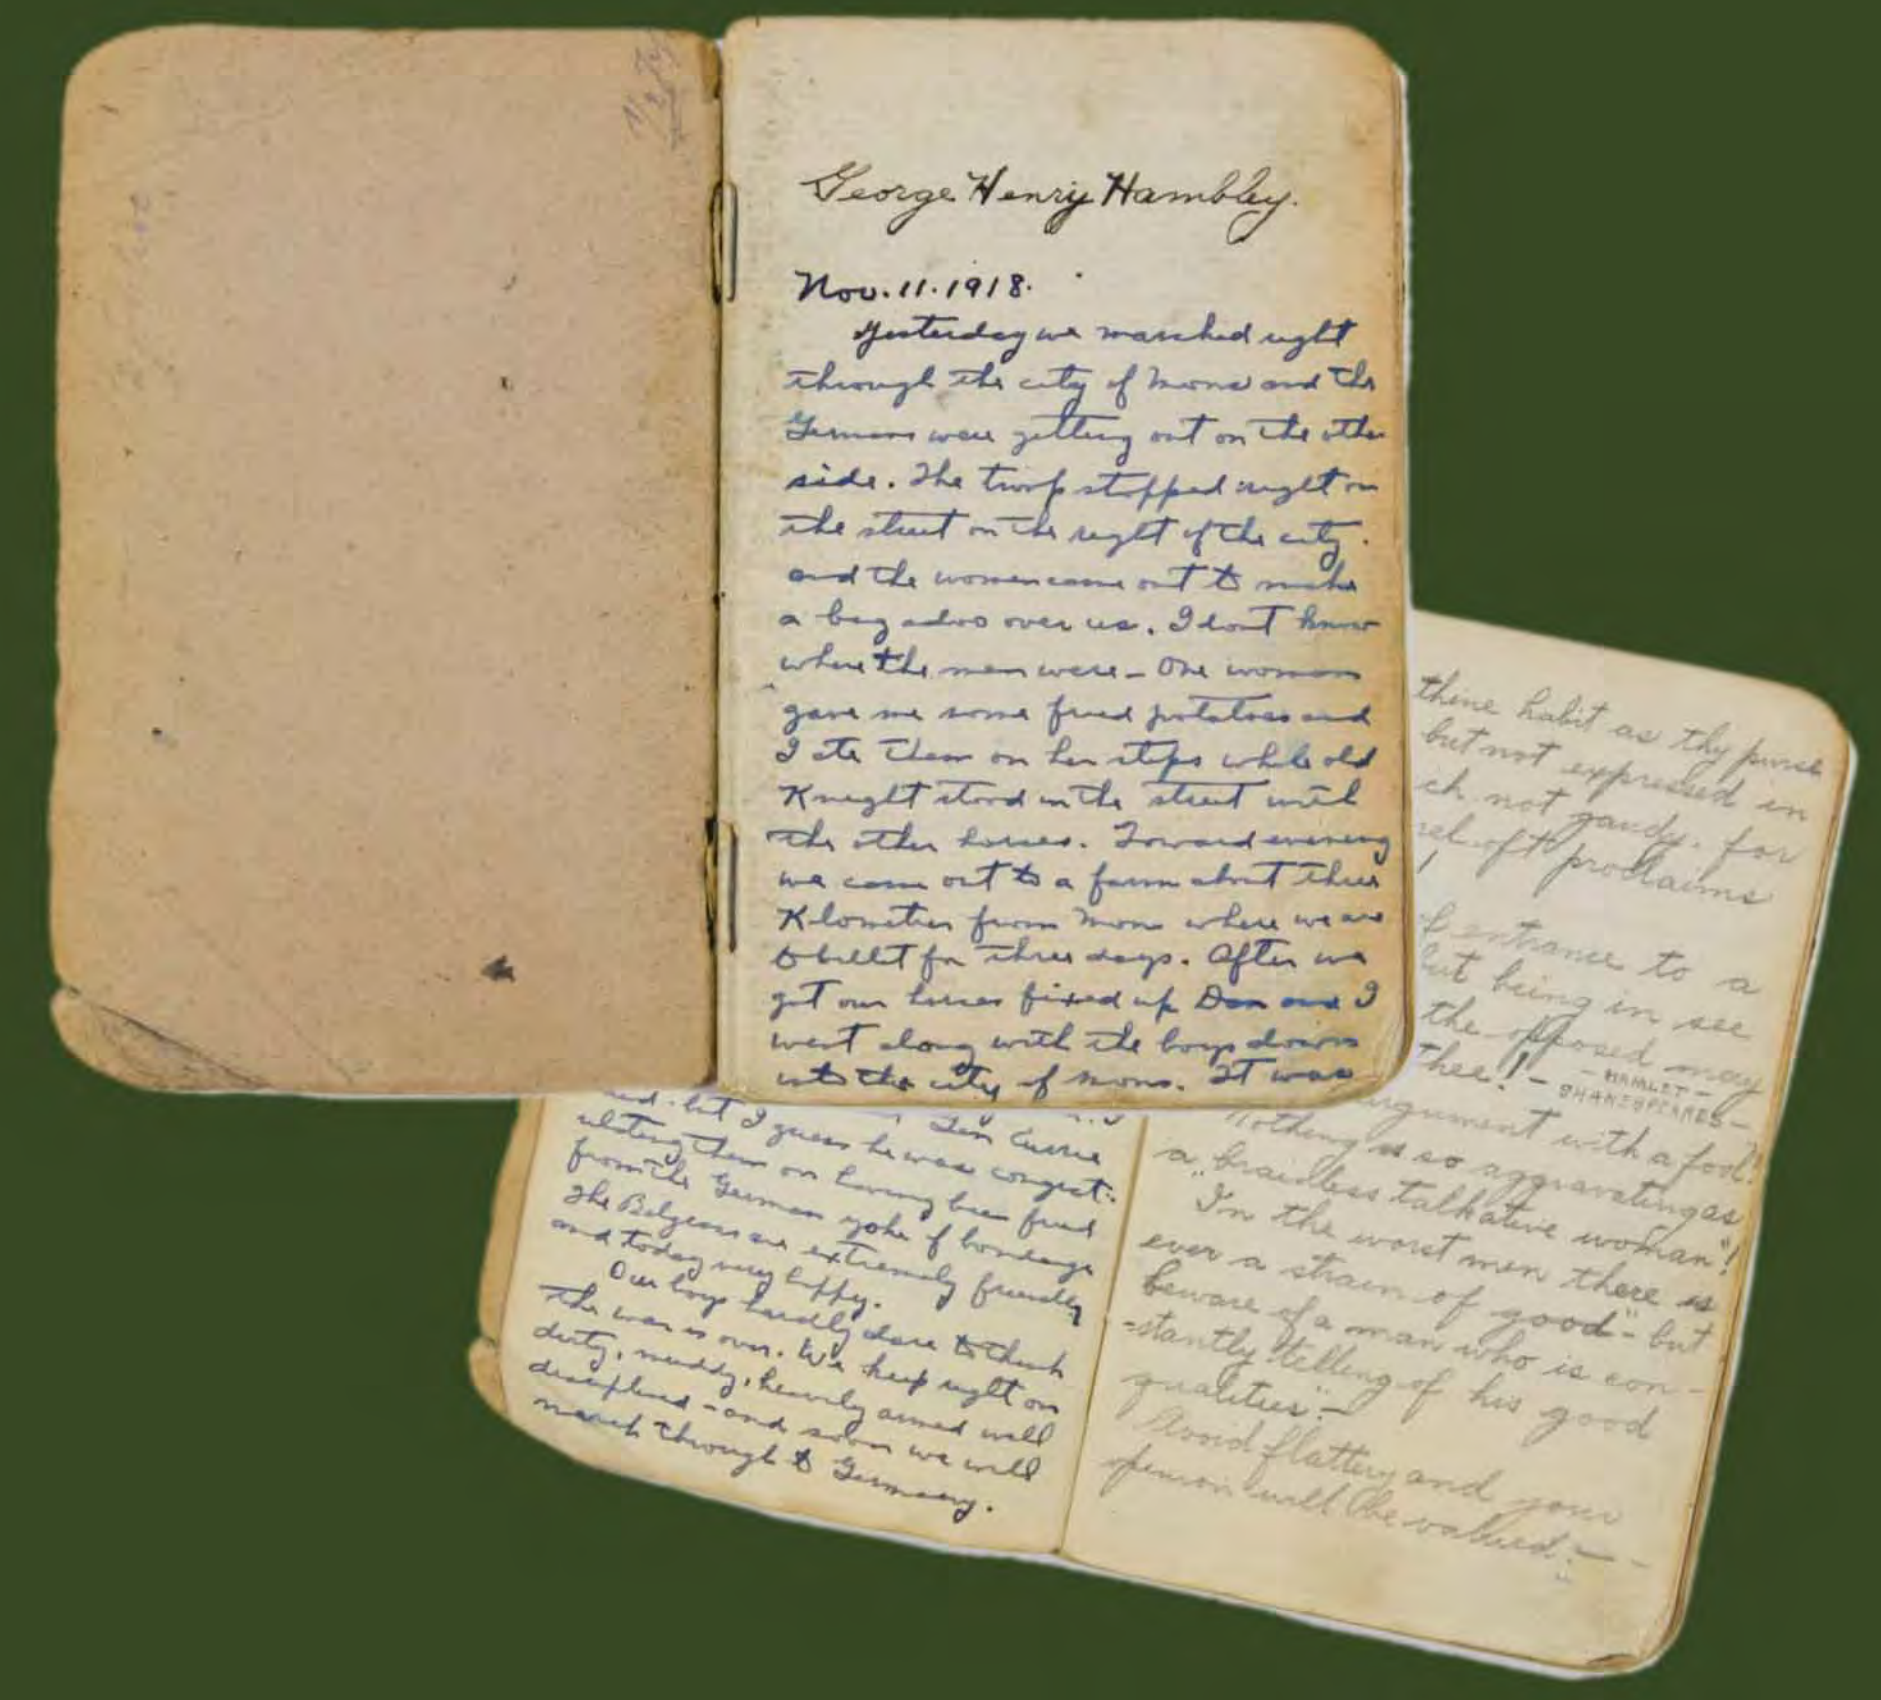 George Henry Hambley.
Nov. 11. 1918.
Yesterday we marched right
through the city of Mons and the
Germans were getting out on the other
side. The troop stopped right on
the street on the right of the city.
and the women came out to make
a big adoo over us. I dont know
where the men were - One woman
gave me some fried potatoes and
I ate them on her steps while old
Knight stood in the street with
the other horses. Toward evening
we came out to a farm about three
Klometers from Mons where we are
to billet for three days. After we
got our horses fixed up Dan and I
went along with the boys down
into the city of Mons. It was
but I guess he was congrat-
Gen Currie
ulating them on having been freed
from the German yoke of bondage
The Belgians are extremely friendly
and today very happy.
Our boys hardly dare to think
the war is over. We keep right on
dirty, muddy, heavily armed well
disciplined - and soon we will
march through to Germany.
thine habit as thy purse
but not expressed in
ch not gaudy. for
rel oft proclaims
f entrance to a
but being in see
the opposed may
thee! -
- HAMLET -
SHAKESPEARES -
argument with a fool!
Nothing is so aggravating as
a brainless talkative woman"!
"In the worst men there is
ever a strain of good" - but
beware of a man who is con-
-stantly telling of his good
qualities" -
Avoid flattery and your
opinion will be valued. -